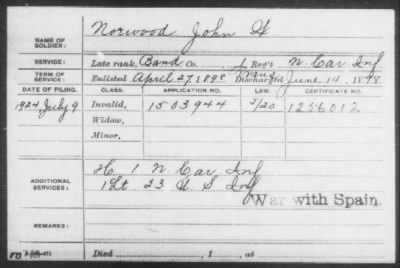 NAME OF SOLDIER: Norwood John H
SERVICE: Late rank, Band Co. 1 Reg't N. Car Inf
TERM OF SERVICE: Enlisted April 27, 1898 Discharged June 14, 1898
DATE OF FILING. CLASS. APPLICATION NO. LAW. CERTIFICATE NO.
1924 July 9 Invalid, 1503944 3/20 1256012
Widow,
Minor,
ADDITIONAL SERVICES: H. 1 N. Car Inf
1 Lt. 23 U S Inf
War with Spain.
REMARKS:
Died , 1 , at